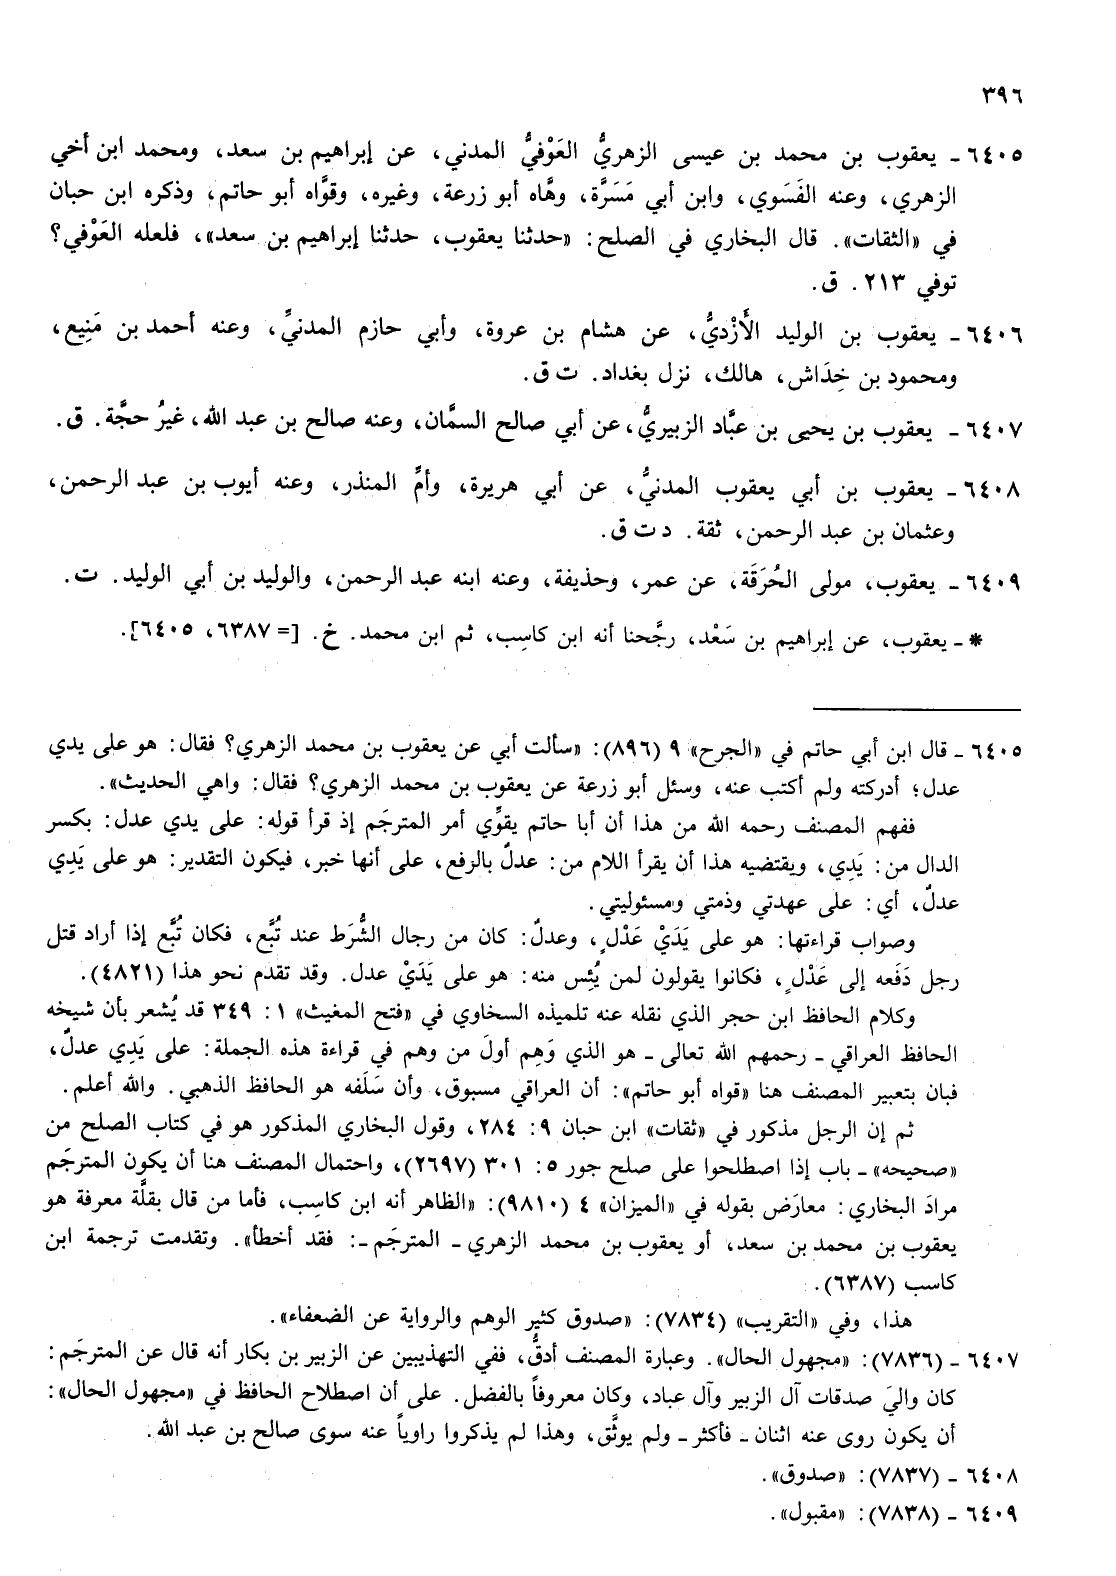 ٣٩٦
٦٤٠٥ ـ يعقوب بن محمد بن عيسى الزهريُّ العَوْفيُّ المدني، عن إبراهيم بن سعد، ومحمد ابن أخي
الزهري، وعنه الفَسَوي، وابن أبي مَسَرَّة، وهَّاه أبو زرعة، وغيره، وقوَّاه أبو حاتم، وذكره ابن حبان
في «الثقات». قال البخاري في الصلح: «حدثنا يعقوب، حدثنا إبراهيم بن سعد»، فلعله العَوْفي؟
توفي ٢١٣. ق.
٦٤٠٦ ـ يعقوب بن الوليد الأَزْديُّ، عن هشام بن عروة، وأبي حازم المدنيِّ، وعنه أحمد بن مَنِيع،
ومحمود بن خِدَاش، هالك، نزل بغداد. ت ق.
٦٤٠٧ ـ يعقوب بن يحيى بن عبَّاد الزبيريُّ، عن أبي صالح السمَّان، وعنه صالح بن عبد الله، غيرُ حجَّة. ق.
٦٤٠٨ ـ يعقوب بن أبي يعقوب المدنيُّ، عن أبي هريرة، وأمِّ المنذر، وعنه أيوب بن عبد الرحمن،
وعثمان بن عبد الرحمن، ثقة. د ت ق.
٦٤٠٩ ـ يعقوب، مولى الحُرَقَة، عن عمر، وحذيفة، وعنه ابنه عبد الرحمن، والوليد بن أبي الوليد. ت.
* ـ يعقوب، عن إبراهيم بن سَعْد، رجَّحنا أنه ابن كاسِب، ثم ابن محمد. خ. [= ٦٣٨٧، ٦٤٠٥].
٦٤٠٥ ـ قال ابن أبي حاتم في «الجرح» ٩ (٨٩٦): «سألت أبي عن يعقوب بن محمد الزهري؟ فقال: هو على يدي
عدل؛ أدركته ولم أكتب عنه، وسئل أبو زرعة عن يعقوب بن محمد الزهري؟ فقال: واهي الحديث».
ففهم المصنف رحمه الله من هذا أن أبا حاتم يقوِّي أمر المترجَم إذ قرأ قوله: على يدي عدل: بكسر
الدال من: يَدِي، ويقتضيه هذا أن يقرأ اللام من: عدلٌ بالرفع، على أنها خبر، فيكون التقدير: هو على يَدِي
عدلٌ، أي: على عهدتي وذمتي ومسئوليتي.
وصواب قراءتها: هو على يَدَيْ عَدْلٍ، وعدلٌ: كان من رجال الشُّرَط عند تُبَّع، فكان تُبَّع إذا أراد قتل
رجل دَفَعه إلى عَدْلٍ، فكانوا يقولون لمن يُئِس منه: هو على يَدَيْ عدل. وقد تقدم نحو هذا (٤٨٢١).
وكلام الحافظ ابن حجر الذي نقله عنه تلميذه السخاوي في «فتح المغيث» ١: ٣٤٩ قد يُشعر بأن شيخه
الحافظ العراقي ـ رحمهم الله تعالى ـ هو الذي وَهِم أولَ من وهم في قراءة هذه الجملة: على يَدِي عدلٌ،
فبان بتعبير المصنف هنا «قواه أبو حاتم»: أن العراقي مسبوق، وأن سَلَفه هو الحافظ الذهبي. والله أعلم.
ثم إن الرجل مذكور في «ثقات» ابن حبان ٩: ٢٨٤، وقول البخاري المذكور هو في كتاب الصلح من
«صحيحه» ـ باب إذا اصطلحوا على صلح جور ٥: ٣٠١ (٢٦٩٧)، واحتمال المصنف هنا أن يكون المترجَم
مرادَ البخاري: معارَض بقوله في «الميزان» ٤ (٩٨١٠): «الظاهر أنه ابن كاسِب، فأما من قال بقلَّة معرفة هو
يعقوب بن محمد بن سعد، أو يعقوب بن محمد الزهري ـ المترجَم ـ: فقد أخطأ». وتقدمت ترجمة ابن
كاسب (٦٣٨٧).
هذا، وفي «التقريب» (٧٨٣٤): «صدوق كثير الوهم والرواية عن الضعفاء».
٦٤٠٧ ـ (٧٨٣٦): «مجهول الحال». وعبارة المصنف أدقُّ، ففي التهذيبين عن الزبير بن بكار أنه قال عن المترجَم:
كان واليَ صدقات آل الزبير وآل عباد، وكان معروفاً بالفضل. على أن اصطلاح الحافظ في «مجهول الحال»:
أن يكون روى عنه اثنان ـ فأكثر ـ ولم يوثَّق، وهذا لم يذكروا راوياً عنه سوى صالح بن عبد الله.
٦٤٠٨ ـ (٧٨٣٧): «صدوق».
٦٤٠٩ ـ (٧٨٣٨): «مقبول».